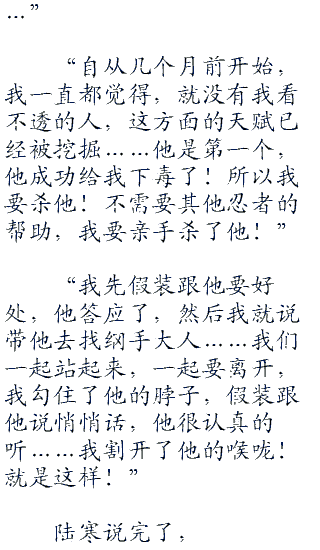 …”
“自从几个月前开始，
我一直都觉得，就没有我看
不透的人，这方面的天赋已
经被挖掘……他是第一个，
他成功给我下毒了！所以我
要杀他！不需要其他忍者的
帮助，我要亲手杀了他！”
“我先假装跟他要好
处，他答应了，然后我就说
带他去找纲手大人……我们
一起站起来，一起要离开，
我勾住了他的脖子，假装跟
他说悄悄话，他很认真的
听……我割开了他的喉咙！
就是这样！”
陆寒说完了，